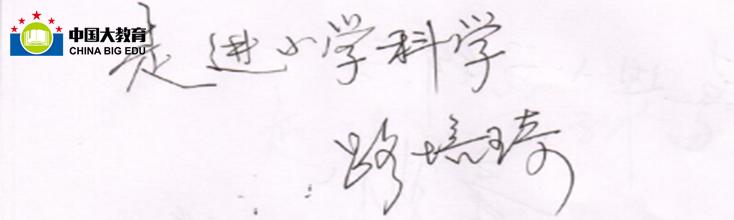 中国大教育
CHINA BIG EDU
走进小学科学
路培琦